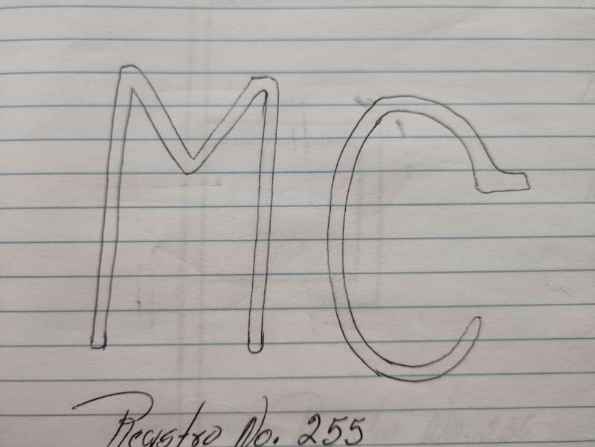 MC
Registro No. 255